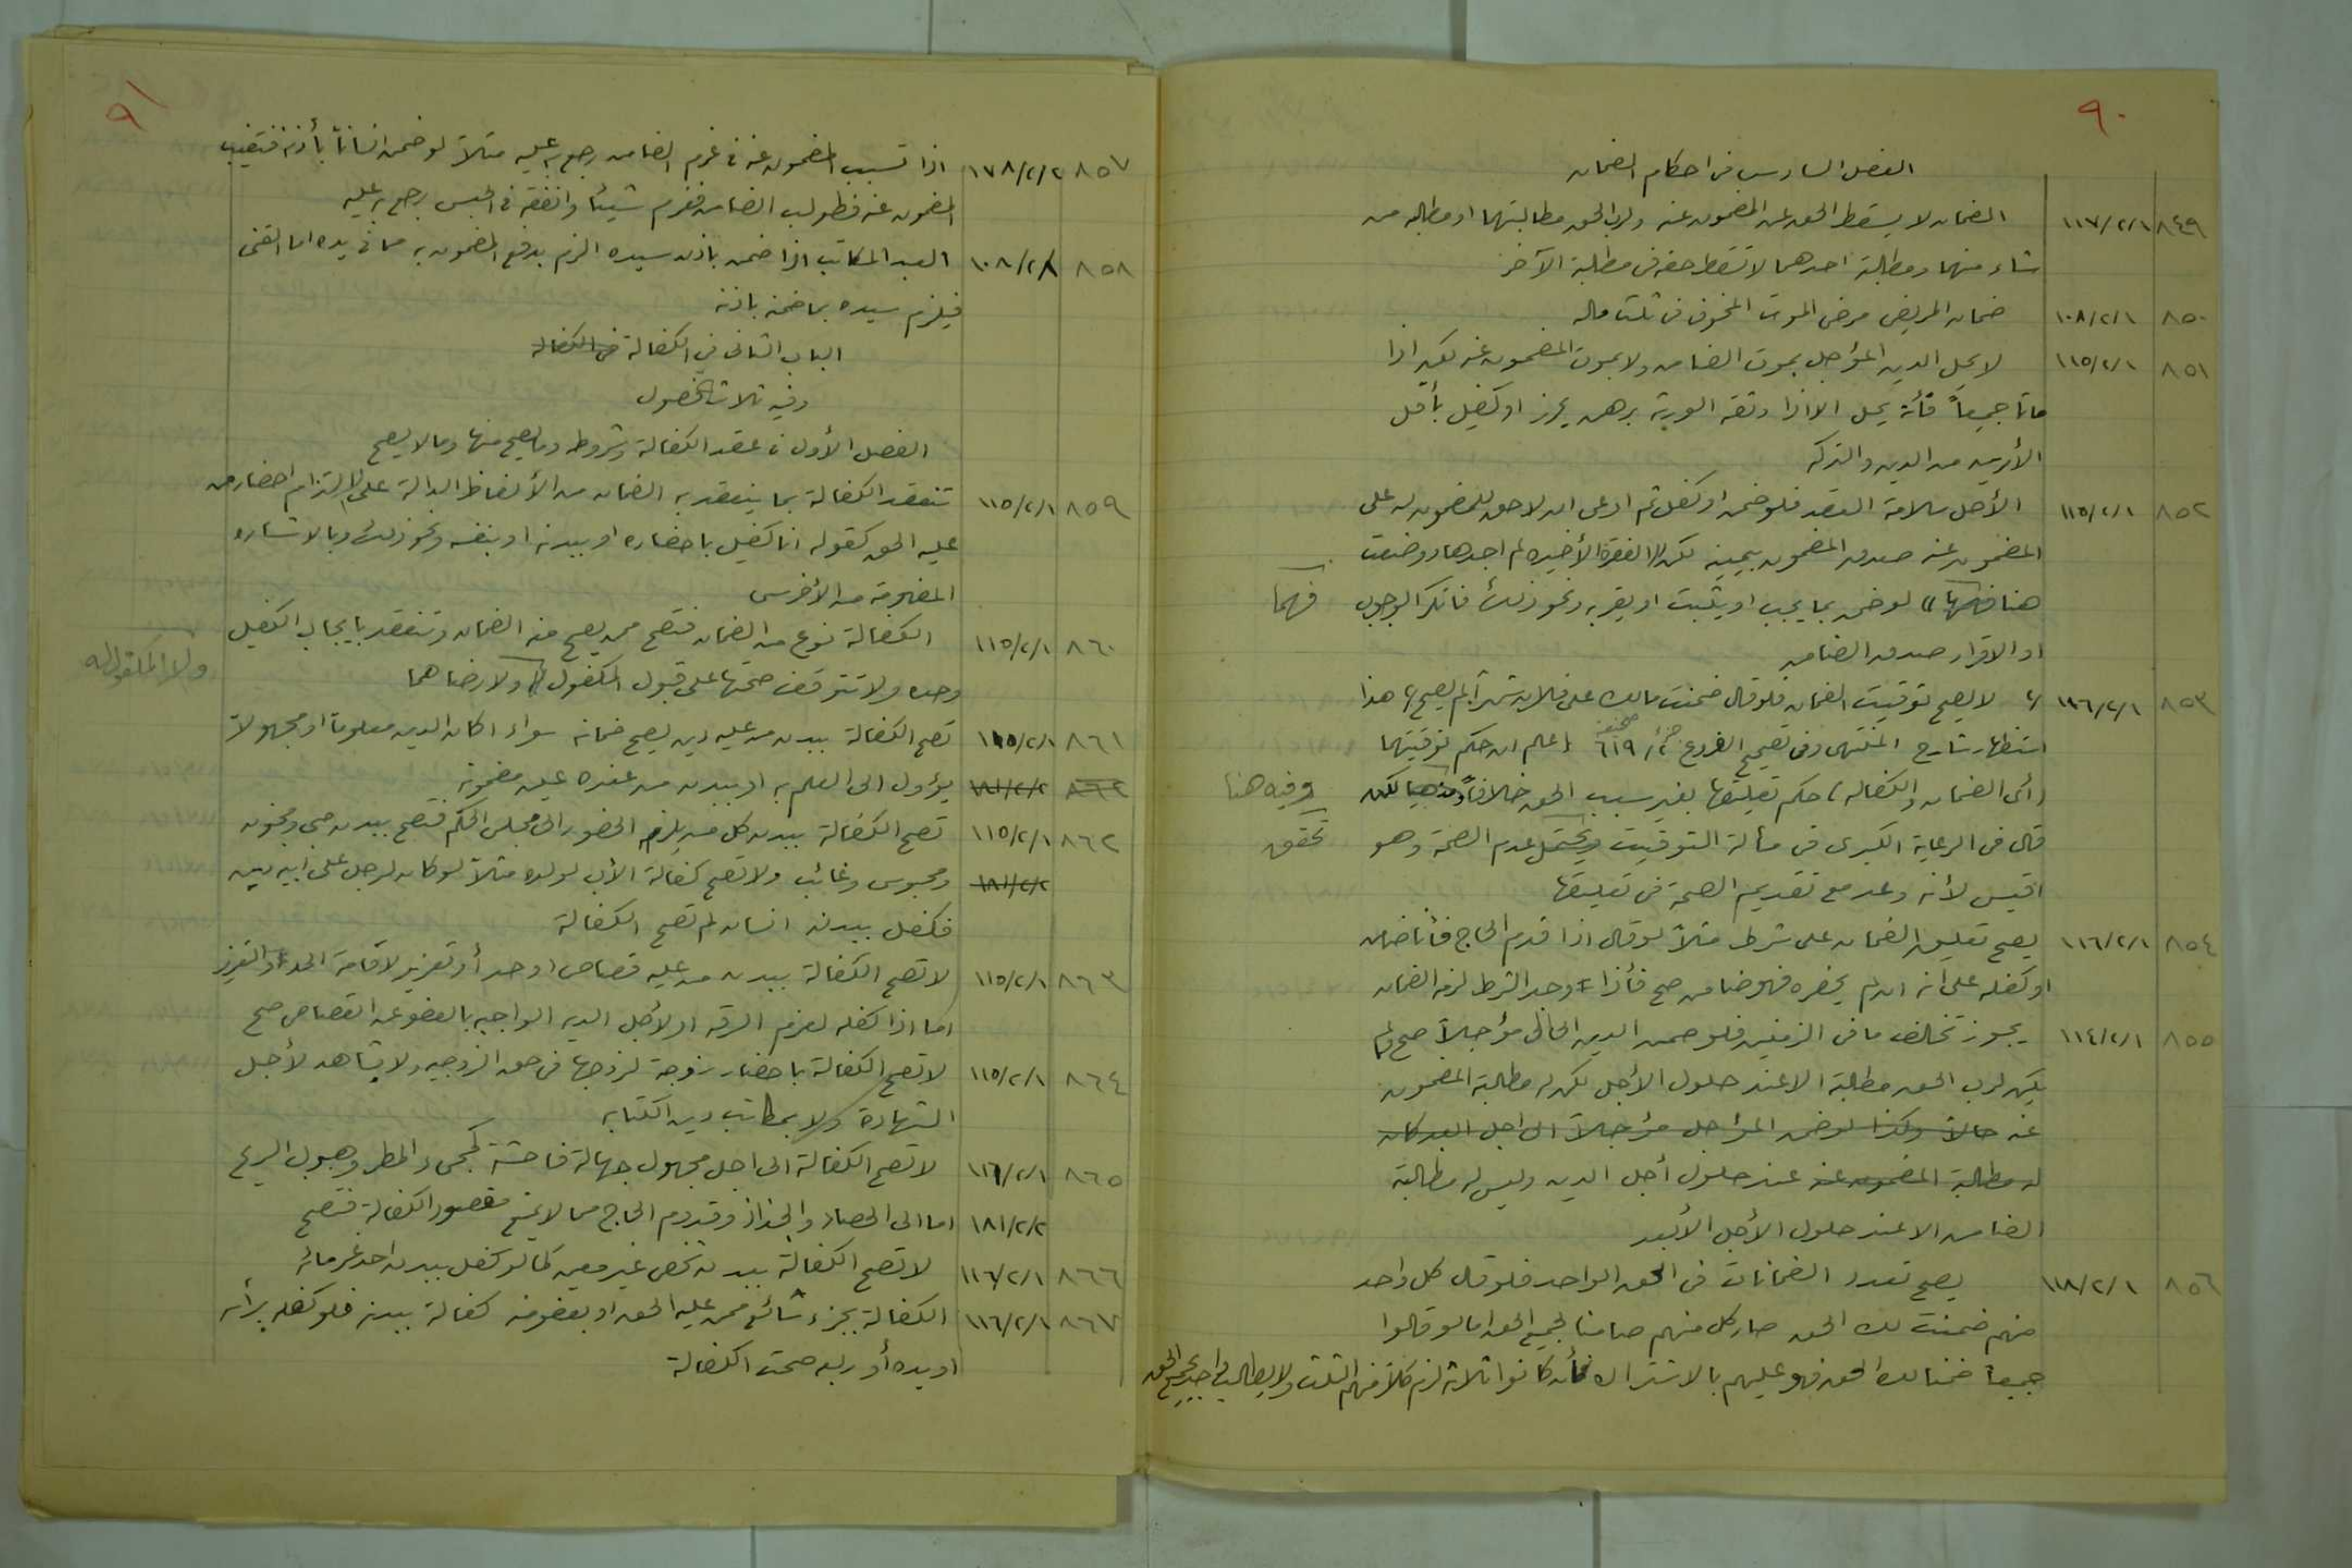 ٩٠
الفصل السادس في احكام الضمان
٨٤٩ ١١٧/٢/١ الضمان لا يسقط الحق عن المضمون عنه ولرب الحق مطالبتهما او مطالبة من
شاء منهما ومطالبة احدهما لا تسقط حقه في مطالبة الآخر
٨٥٠ ١٠٨/٢/١ ضمان المريض مرض الموت المخوف في ثلث ماله
٨٥١ ١١٥/٢/١ لا يحل الدين المؤجل بموت الضامن ولا بموت المضمون عنه لكن اذا
ماتا جميعاً فأنه يحل الا اذا وثقه الورثة برهن يحرز او كفيل بأقل
الأمرين من الدين والتركه
٨٥٢ ١١٥/٢/١ الأصل سلامة العقد فلو ضمن او كفل ثم ادعى ان لا حق للمضمون له على
المضمون عنه صدق المضمون بيمينه لكن // الفقرة الأخيره لم اجدها ووضعت
هنا فهما // لو ضمن بما يجب او يثبت او يقر به ونحو ذلك فانكر الوجوب فهما
او الاقرار صدق الضامن
٨٥٣ ١١٦/٢/١ // لا يصح توقيت الضمان فلو قال ضمنت مالك على فلان شهراً لم يصح // هذا
استظهار شارح المنتهى وفي تصحيح الفروع ج/٢ صحيفة ٦١٩ اعلم ان حكم توقيتهما
(أى الضمان والكفاله) حكم تعليقها بغير سبب الحق خلافاً ومذهبا لكن وفيه هنا
قال في الرعاية الكبرى في مسألة التوقيت ويحتمل عدم الصحة وهو تحقق
اقيس لأنه وعد مع تقديم الصحة في تعليقها
٨٥٤ ١١٦/٢/١ يصح تعليق الضمان على شرط مثلاً لو قال اذا قدم الحاج فأنا ضامن
او كفله على انه ان لم يحضره فهو ضامن صح فأذا وجد الشرط لزمه الضمان
٨٥٥ ١١٤/٢/١ يجوز تخالف ما في الذمتين فلو ضمن الدين الحال مؤجلاً صح ولم
يكن لرب الحق مطالبة الا عند حلول الأجل لكن له مطالبة المضمون
عنه حالاً وكذا لو ضمن المؤاجل مؤجلاً الى اجل ابعد كان
له مطالبة المضمون عنه عند حلول أجل الدين وليس له مطالبة
الضامن الا عند حلول الأجل الأبعد
٨٥٦ ١١٨/٢/١ يصح تعدد الضمانات في الحق الواحد فلو قال كل واحد
منهم ضمنت لك الحق صار كل منهم ضامنا لجميع الحق اما لو قالوا
جميعا ضمنا لك الحق فهو عليهم بالاشتراك فأن كانوا ثلاثة لزم كلاً منهم الثلث ولا يطالب احد بجميع الحق
٩١
٨٥٧ ١٧٨/٢/٢ اذا تسبب المضمون عنه في غرم الضامن رجع به عليه مثلاً لو ضمن انساناً بأذنه فتغيب
المضمون عنه فطولب الضامن فغرم شيئاً وانفقه في الحبس يرجع به عليه
٨٥٨ ١٠٨/٢/١ العبد المكاتب اذا ضمن باذن سيده الزم بدفع المضمون به مما في يده اما القني
فيلزم سيده بما ضمنه باذنه
الباب الثاني في الكفالة في الكفاله
وفيه ثلاث فصول
الفصل الأول في عقد الكفالة وشروطه وما يصح منها وما لا يصح
٨٥٩ ١١٥/٢/١ تنعقد الكفالة بما ينعقد به الضمان من الألفاظ الدالة على التزام احضار من
عليه الحق كقوله انا كفيل باحضاره او ببدنه او بنفسه ونحو ذلك وبالاشاره
المفهومة من الأخرس
٨٦٠ ١١٥/٢/١ الكفالة نوع من الضمان فتصح ممن يصح منه الضمان وتنعقد بايجاب الكفيل
وحده ولا تتوقف صحتها على قبول المكفول له ولا رضاهما ولا المكفول له
٨٦١ ١١٥/٢/١ تصح الكفالة ببدن من عليه دين يصح ضمانه سواء اكان الدين معلوما او مجهولا
٨٦٢ ١٨١/٢/٢ يؤول الى العلم به او ببدن من عنده عين مضمونه
٨٦٢ ١١٥/٢/١ تصح الكفالة ببدن كل من يلزم الحضور الى مجلس الحكم فتصح ببدن صبي ومجنون
١٨١/٢/٢ ومحبوس وغائب ولا تصح كفالة الأب لولده مثلاً لو كان لرجل على ابيه دين
فكفل ببدنه انسان لم تصح الكفالة
٨٦٣ ١١٥/٢/١ لا تصح الكفالة ببدن من عليه قصاص او حد أو تعزير لاقامة الحد او التعزير
اما اذا كفله لغرم السرقه او لأجل الدين الواجب بالعفو عن القصاص صح
٨٦٤ ١١٥/٢/١ لا تصح الكفالة باحضار زوجة لزوجها في حق الزوجيه ولا بشاهد لأجل
الشهادة ولا بمكاتب دين الكتابه
٨٦٥ ١١٦/٢/١ لا تصح الكفالة الى اجل مجهول جهالة فاحشة كمجيء المطر وهبوب الريح
١٨١/٢/٢ اما الى الحصاد والجذاذ وقدوم الحاج مما لا يمنع مقصود الكفالة فتصح
٨٦٦ ١١٦/٢/١ لا تصح الكفالة ببدن شخص غير معين كما لو كفل ببدن احد غرمائه
٨٦٧ ١١٦/٢/١ الكفالة بجزء شائع ممن عليه الحق او بعضو منه كفالة ببدنه فلو كفله برأسه
او يده أو ربعه صحت الكفالة